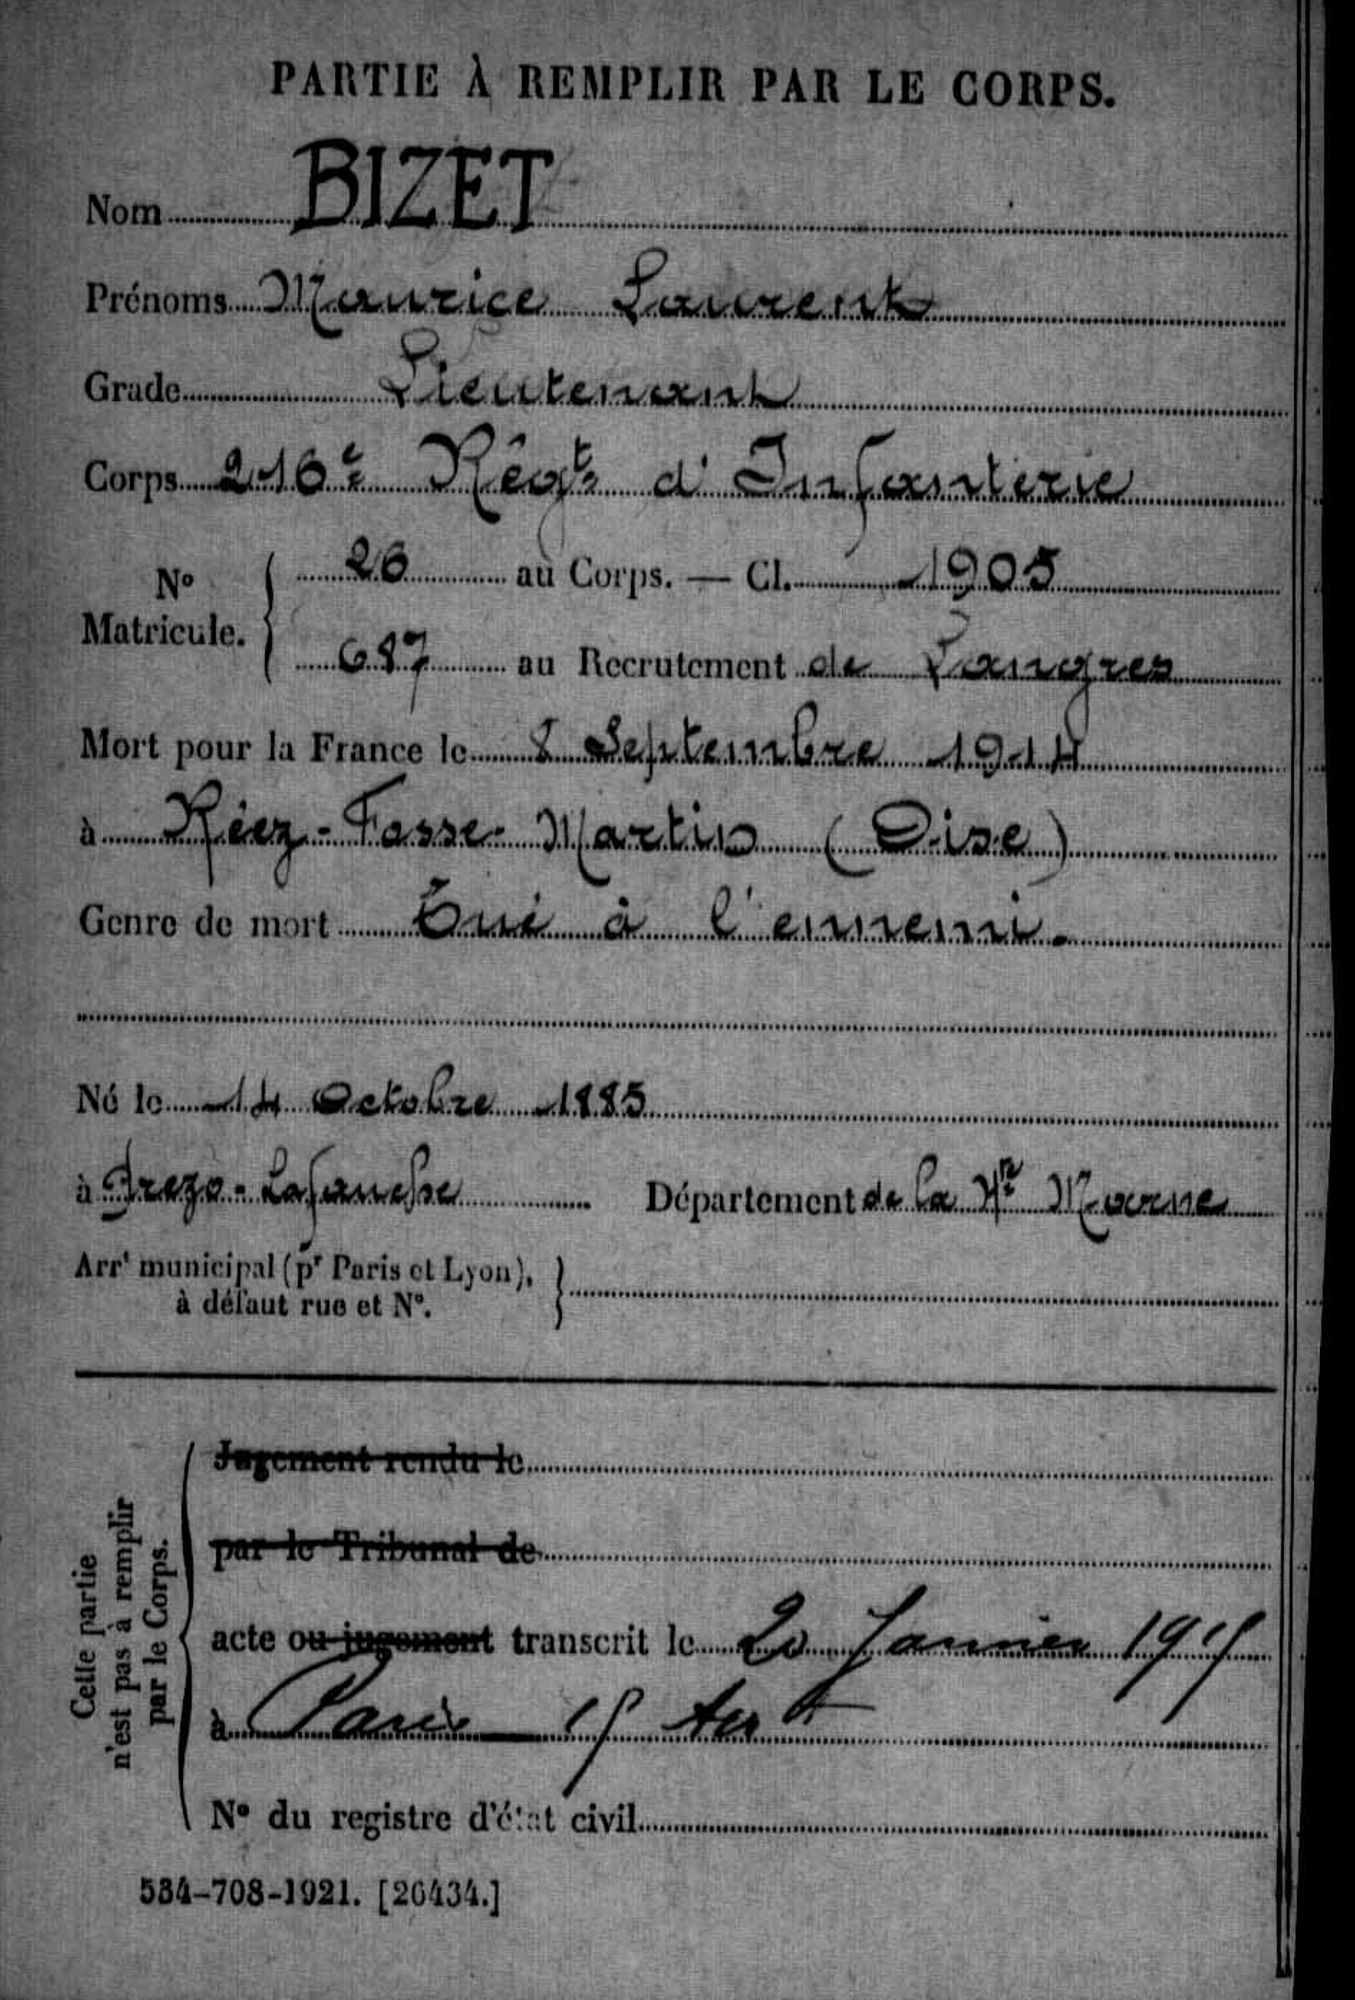 PARTIE À REMPLIR PAR LE CORPS.
Nom BIZET
Prénoms Maurice Laurent
Grade Lieutenant
Corps 216e Régt d'Infanterie
No Matricule. 26 au Corps. — Cl. 1905
687 au Recrutement de Langres
Mort pour la France le 8 Septembre 1914
à Réez-Fosse-Martin (Oise)
Genre de mort Tué à l'ennemi.
Né le 14 Octobre 1885
à Prez-s-Lafauche Département de la Hte Marne
Arrt municipal (pr Paris et Lyon),
à défaut rue et No.
Cette partie
n'est pas à remplir
par le Corps.
Jugement rendu le
par le Tribunal de
acte ou jugement transcrit le 20 Janvier 1915
à Paris - 15 Arrt
No du registre d'état civil
534-708-1921. [26434.]